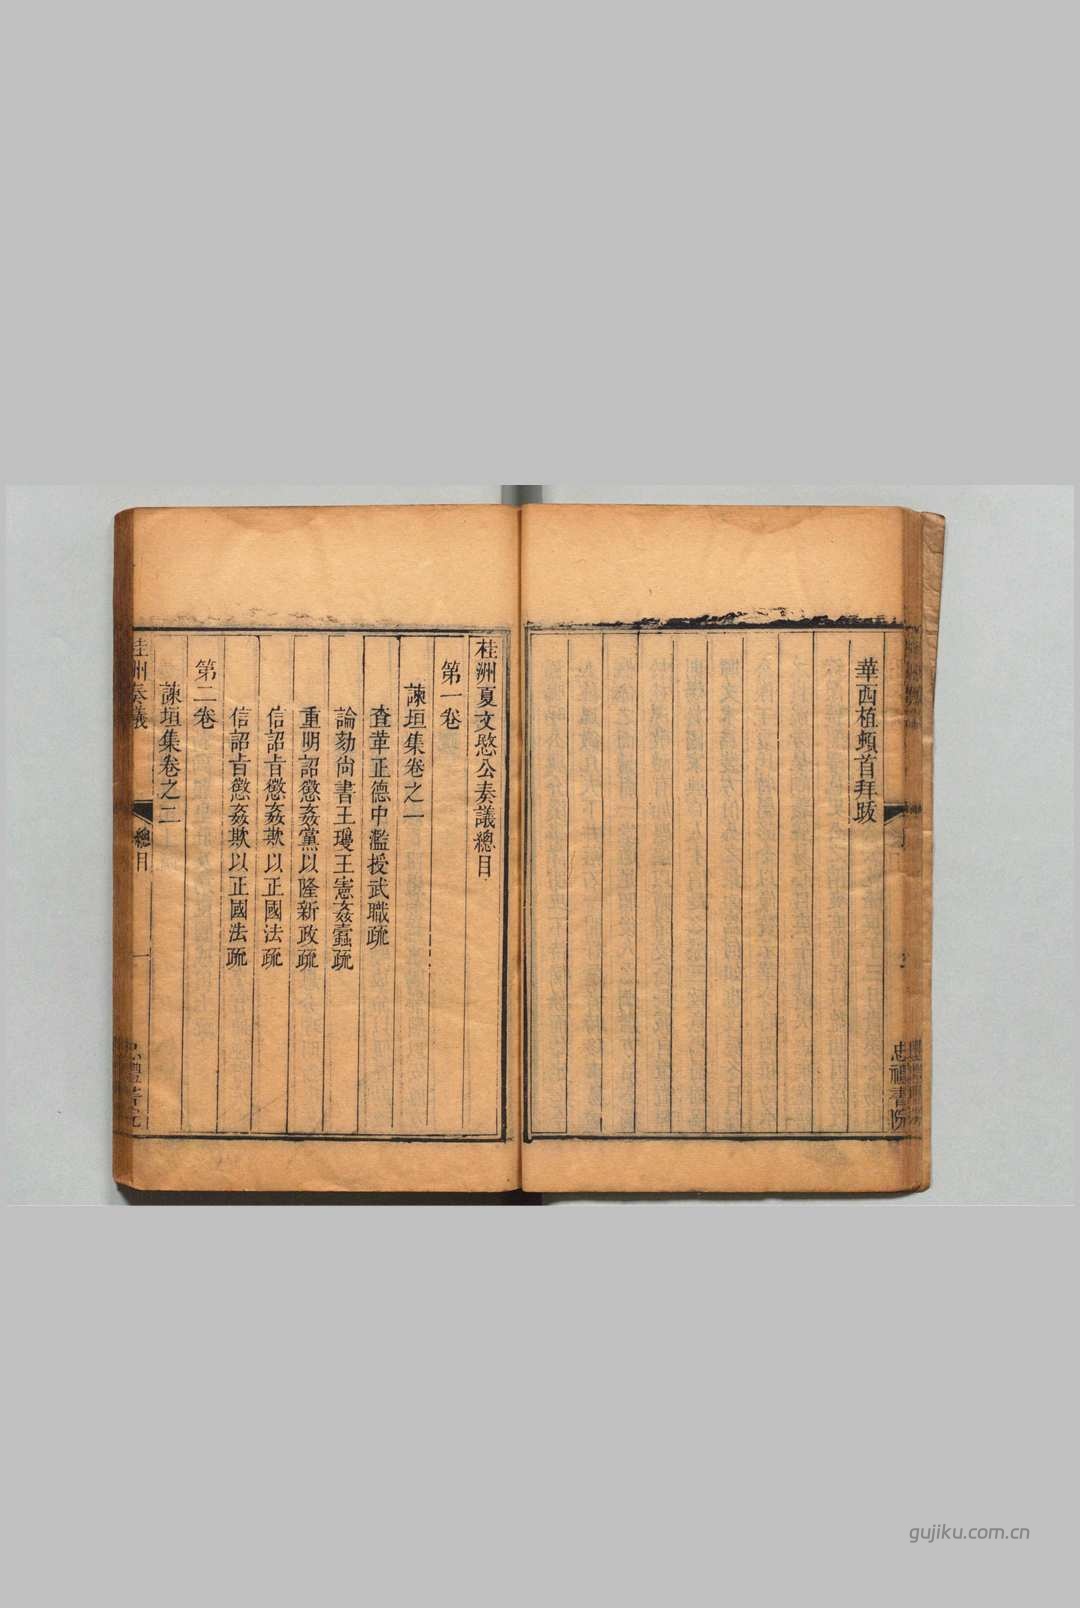 華西植頓首拜跋
忠禮書院
桂洲夏文愍公奏議總目
第一卷
諫垣集卷之一
查革正德中濫授武職疏
論劾尚書王瓊王憲姦蠹疏
重明詔懲姦黨以隆新政疏
信詔旨懲姦欺以正國法疏
信詔旨懲姦欺以正國法疏
第二卷
諫垣集卷之二
桂州奏議
總目
一
忠禮書院
gujiku.com.cn